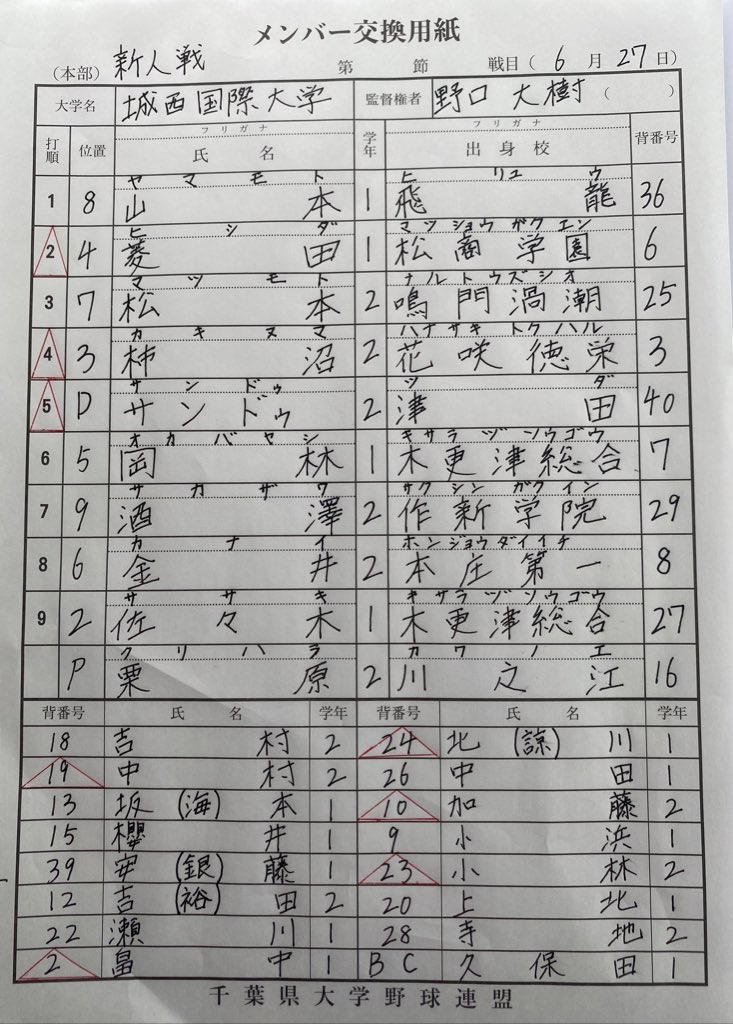 メンバー交換用紙
(本部) 新人戦 第 節 戦目 ( 6 月 27 日)
大学名 城西国際大学 監督権者 野口 大樹 ( )
打順 位置 フリガナ 氏名 学年 フリガナ 出身校 背番号
ヤマモト ヒリュウ
1 8 山本 1 飛龍 36
ヒシダ マツショウガクエン
2 4 菱田 1 松商学園 6
マツモト ナルトウズシオ
3 7 松本 2 鳴門渦潮 25
カキヌマ ハナサキトクハル
4 3 柿沼 2 花咲徳栄 3
サンドゥ ツダ
5 D サンドゥ 2 津田 40
オカバヤシ キサラヅソウゴウ
6 5 岡林 1 木更津総合 7
サカザワ サクシンガクイン
7 9 酒澤 2 作新学院 29
カナイ ホンジョウダイイチ
8 6 金井 2 本庄第一 8
ササキ キサラヅソウゴウ
9 2 佐々木 1 木更津総合 27
クリハラ カワノエ
P 栗原 2 川之江 16
背番号 氏名 学年 背番号 氏名 学年
18 吉村 2 24 北(諒)川 1
19 中村 2 26 中田 1
13 坂(海)本 1 10 加藤 2
15 櫻井 1 9 小浜 1
39 安(銀)藤 1 23 小林 2
12 吉(裕)田 2 20 上北 1
22 瀬川 1 28 寺地 2
2 畠中 1 BC 久保田 1
千葉県大学野球連盟